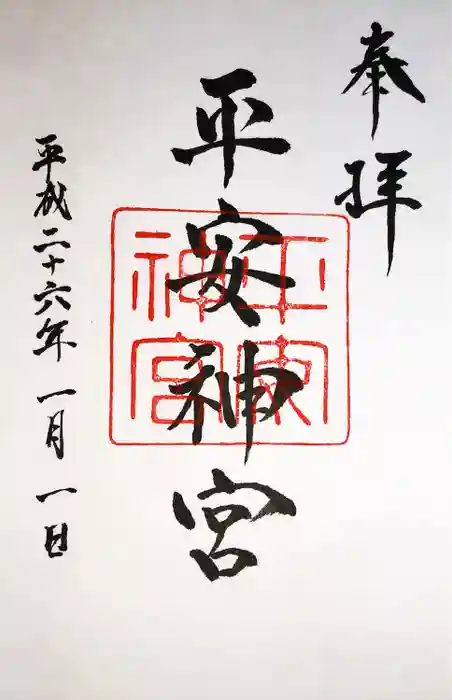 奉拝
平安神宮
平安神宮
平成二十六年 一月 一日